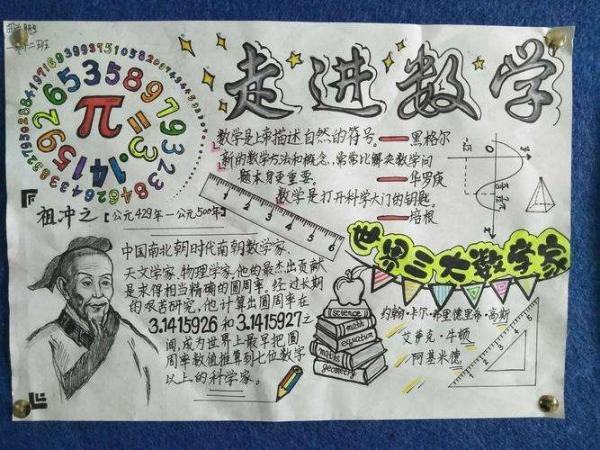 走进数学
π=3.1415926535897932
数学是上帝描述自然的符号。
——黑格尔
新的数学方法和概念，常常比解决数学问
题本身更重要。
——华罗庚
数学是打开科学大门的钥匙。
——培根
祖冲之【公元429年—公元500年】
中国南北朝时代南朝数学家、
天文学家、物理学家，他的最杰出贡献
是求得相当精确的圆周率。经过长期
的艰苦研究，他计算出圆周率在
3.1415926和3.1415927之
间，成为世界上最早把圆
周率数值推算到七位数字
以上的科学家。
1 2 3 4 5 6
science
math
equation
maths
geometry
世界三大数学家
约翰·卡尔·弗里德里希·高斯
艾萨克·牛顿
阿基米德